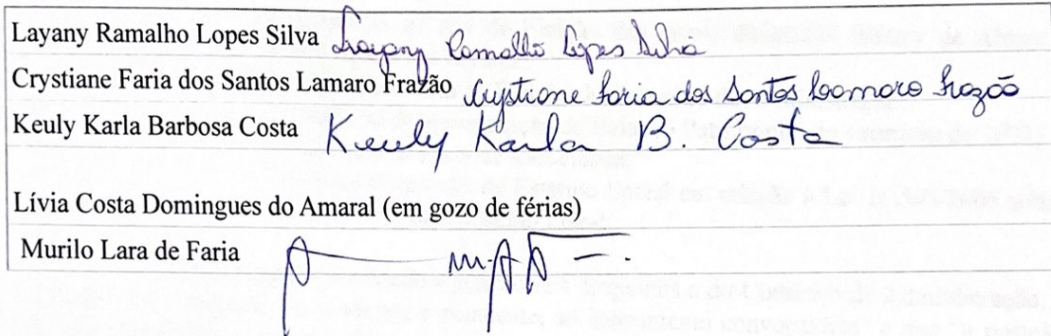 Layany Ramalho Lopes Silva Layany Ramalho Lopes Silva
Crystiane Faria dos Santos Lamaro Frazão Crystiane Faria dos Santos Lamaro Frazão
Keuly Karla Barbosa Costa Keuly Karla B. Costa
Lívia Costa Domingues do Amaral (em gozo de férias)
Murilo Lara de Faria